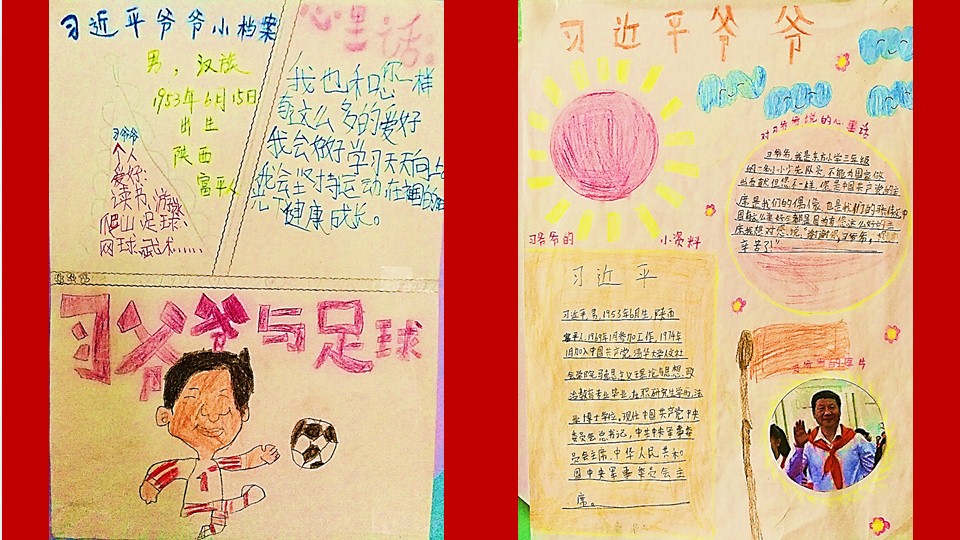 习近平爷爷小档案
男,汉族
1953年6月15日
出生
陕西
富平人
习爷爷
个人
爱好:
读书、游泳
爬山、足球、
网球、武术……
心里话:
我也和您一样
有这么多的爱好
我会做好学习天天向上
我会坚持运动在祖国的
健康成长。
习爷爷与足球
1
习近平爷爷
习爷爷的
小资料
习近平
习近平,男,1953年6月生,陕西
富平人,1969年1月参加工作,1974年
1月加入中国共产党,清华大学人文社
会学院马克思主义理论与思想政
治教育专业毕业,在职研究生学历,法
学博士学位。现任中国共产党中央
委员会总书记,中共中央军事委
员会主席,中华人民共和
国中央军事委员会主
席。
对习爷爷说的心里话
习爷爷,我是东方小学三年级
的一名小少先队员,不能为国家做
出贡献,但您不一样,您是中国共产党的主
席是我们的偶像,也是我们的
辛苦了!"
习爷爷的照片